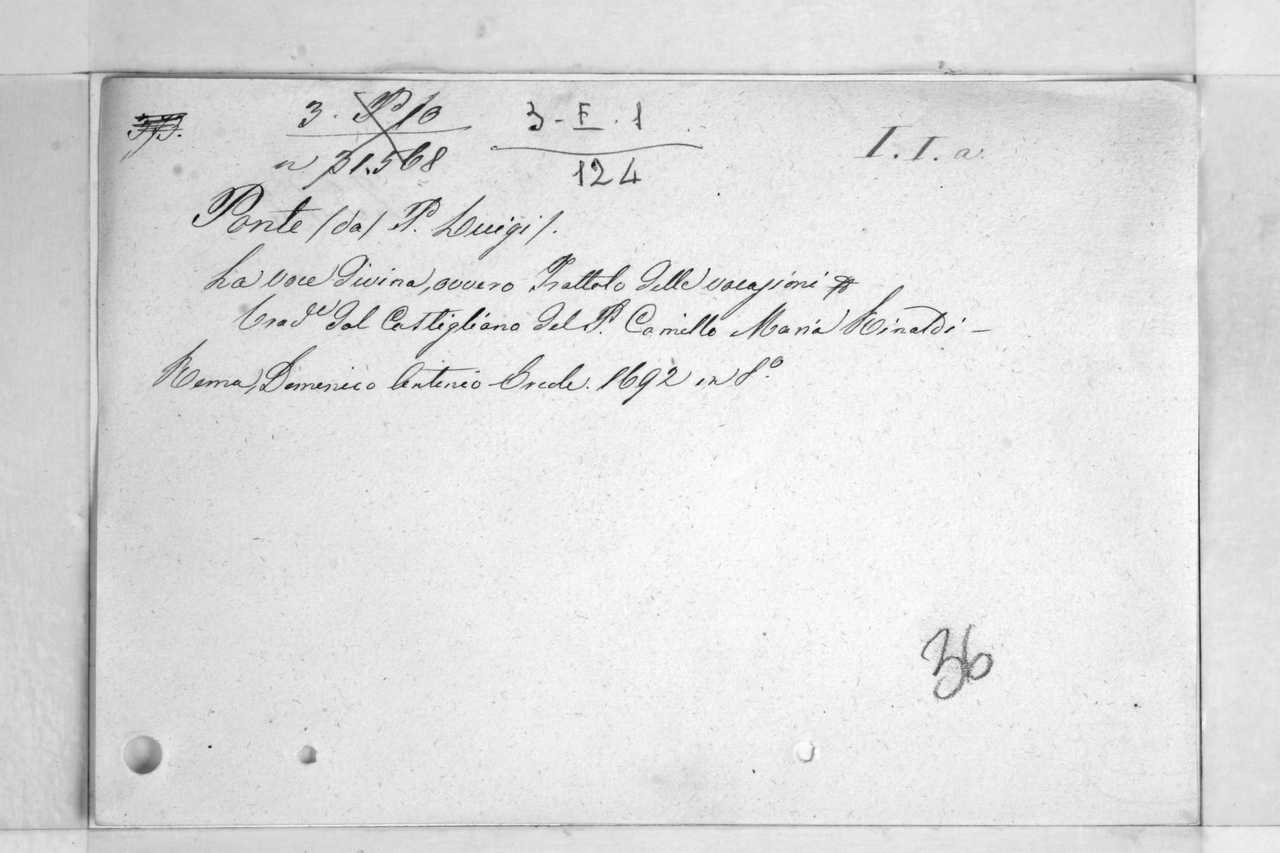 373. 3. P 10 3-F.1 I.I.a.
n 31.568 124
Ponte (da) P. Luigi).
La voce divina, ovvero Trattato delle vocazioni
Trad.e dal Castigliano del P. Camillo Maria Rinaldi -
Roma, Domenico Antonio Ercole. 1692 in 8.º
36